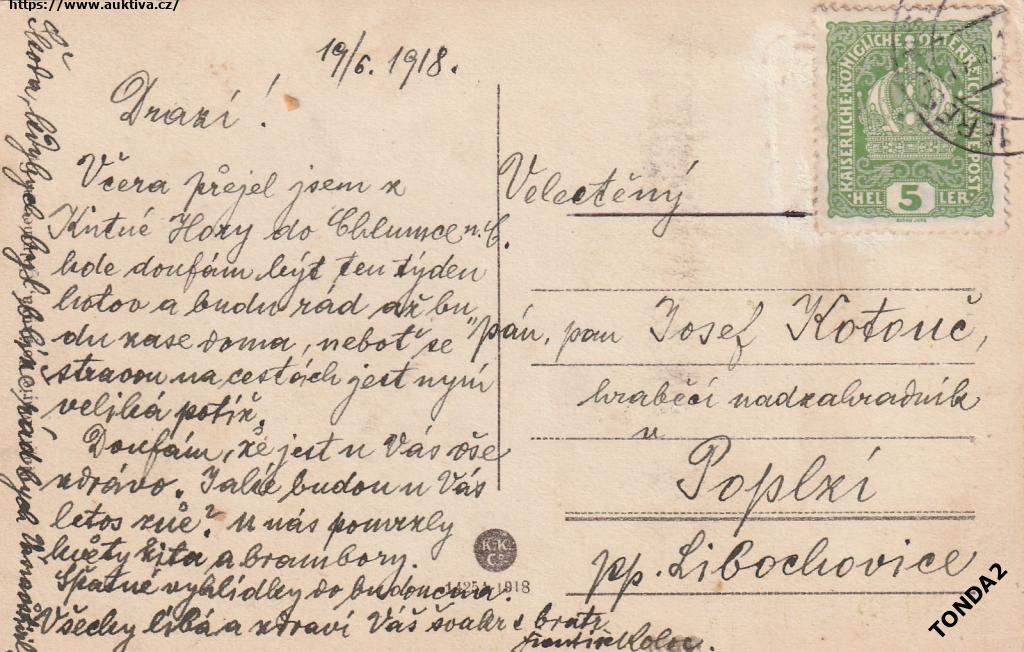 https://www.auktiva.cz/
19/6. 1918.
Drazí!
Včera přejel jsem z
Kutné Hory do Chlumce n. C.
kde doufám býti ten týden
hotov a budu rád až bu
du zase doma, neboť se
stravou na cestách jest nyní
veliká potíž.
Doufám, že jest u Vás vše
zdrávo. Jaké budou u Vás
letos žně? U nás pomrzly
květy žita a brambory.
Špatné vyhlídky do budoucna.
Všechy líbá a zdraví Váš švakr a bratr
František
Škoda, kdybych byl blíže, rád bych
Velectěný
pán, pan Josef Kotouč,
hraběcí nadzahradník
v
Poplzí
pp. Libochovice
KAISERLICHE KÖNIGLICHE ÖSTERREICHISCHE POST
HEL 5 LER
K.K.
Co
1918
TONDA2